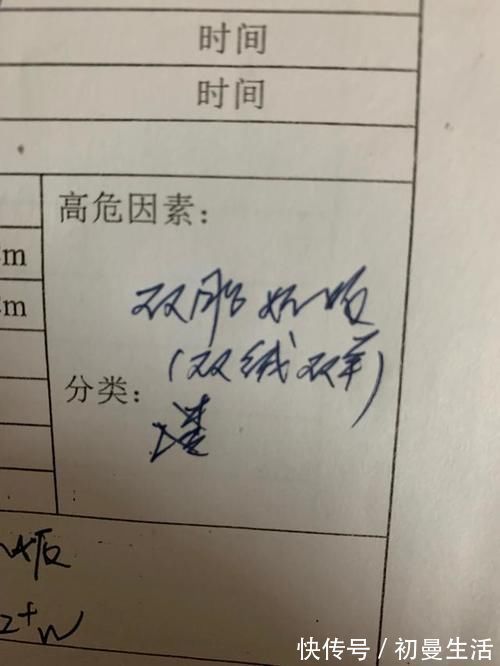 时间
时间
高危因素：
m
m
双胎妊娠
(双绒双羊)
分类：
2+w
快传号 / 初曼生活